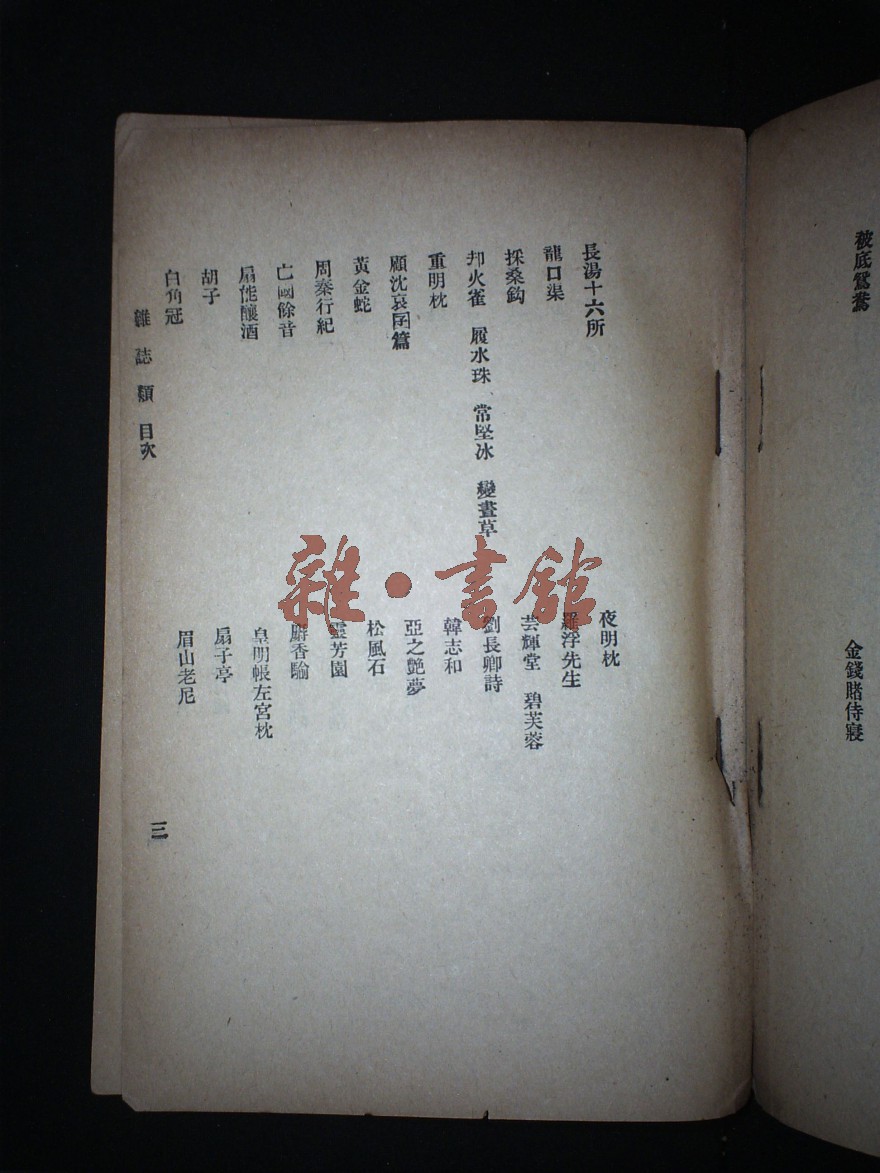 被底鴛鴦
金錢賭侍寢
長湯十六所
夜明枕
龍口渠
羅浮先生
採桑鈎
芸輝堂　碧芙蓉
却火雀　履水珠　常堅冰　變晝草
劉長卿詩
重明枕
韓志和
顧沈哀國篇
亞之艷夢
黃金蛇
松風石
周秦行紀
靈芳園
亡國餘音
麝香騟
扇能釀酒
皇明帳左宮枕
胡子
扇子亭
白角冠
眉山老尼
雜誌類　目次
三
雜·書館